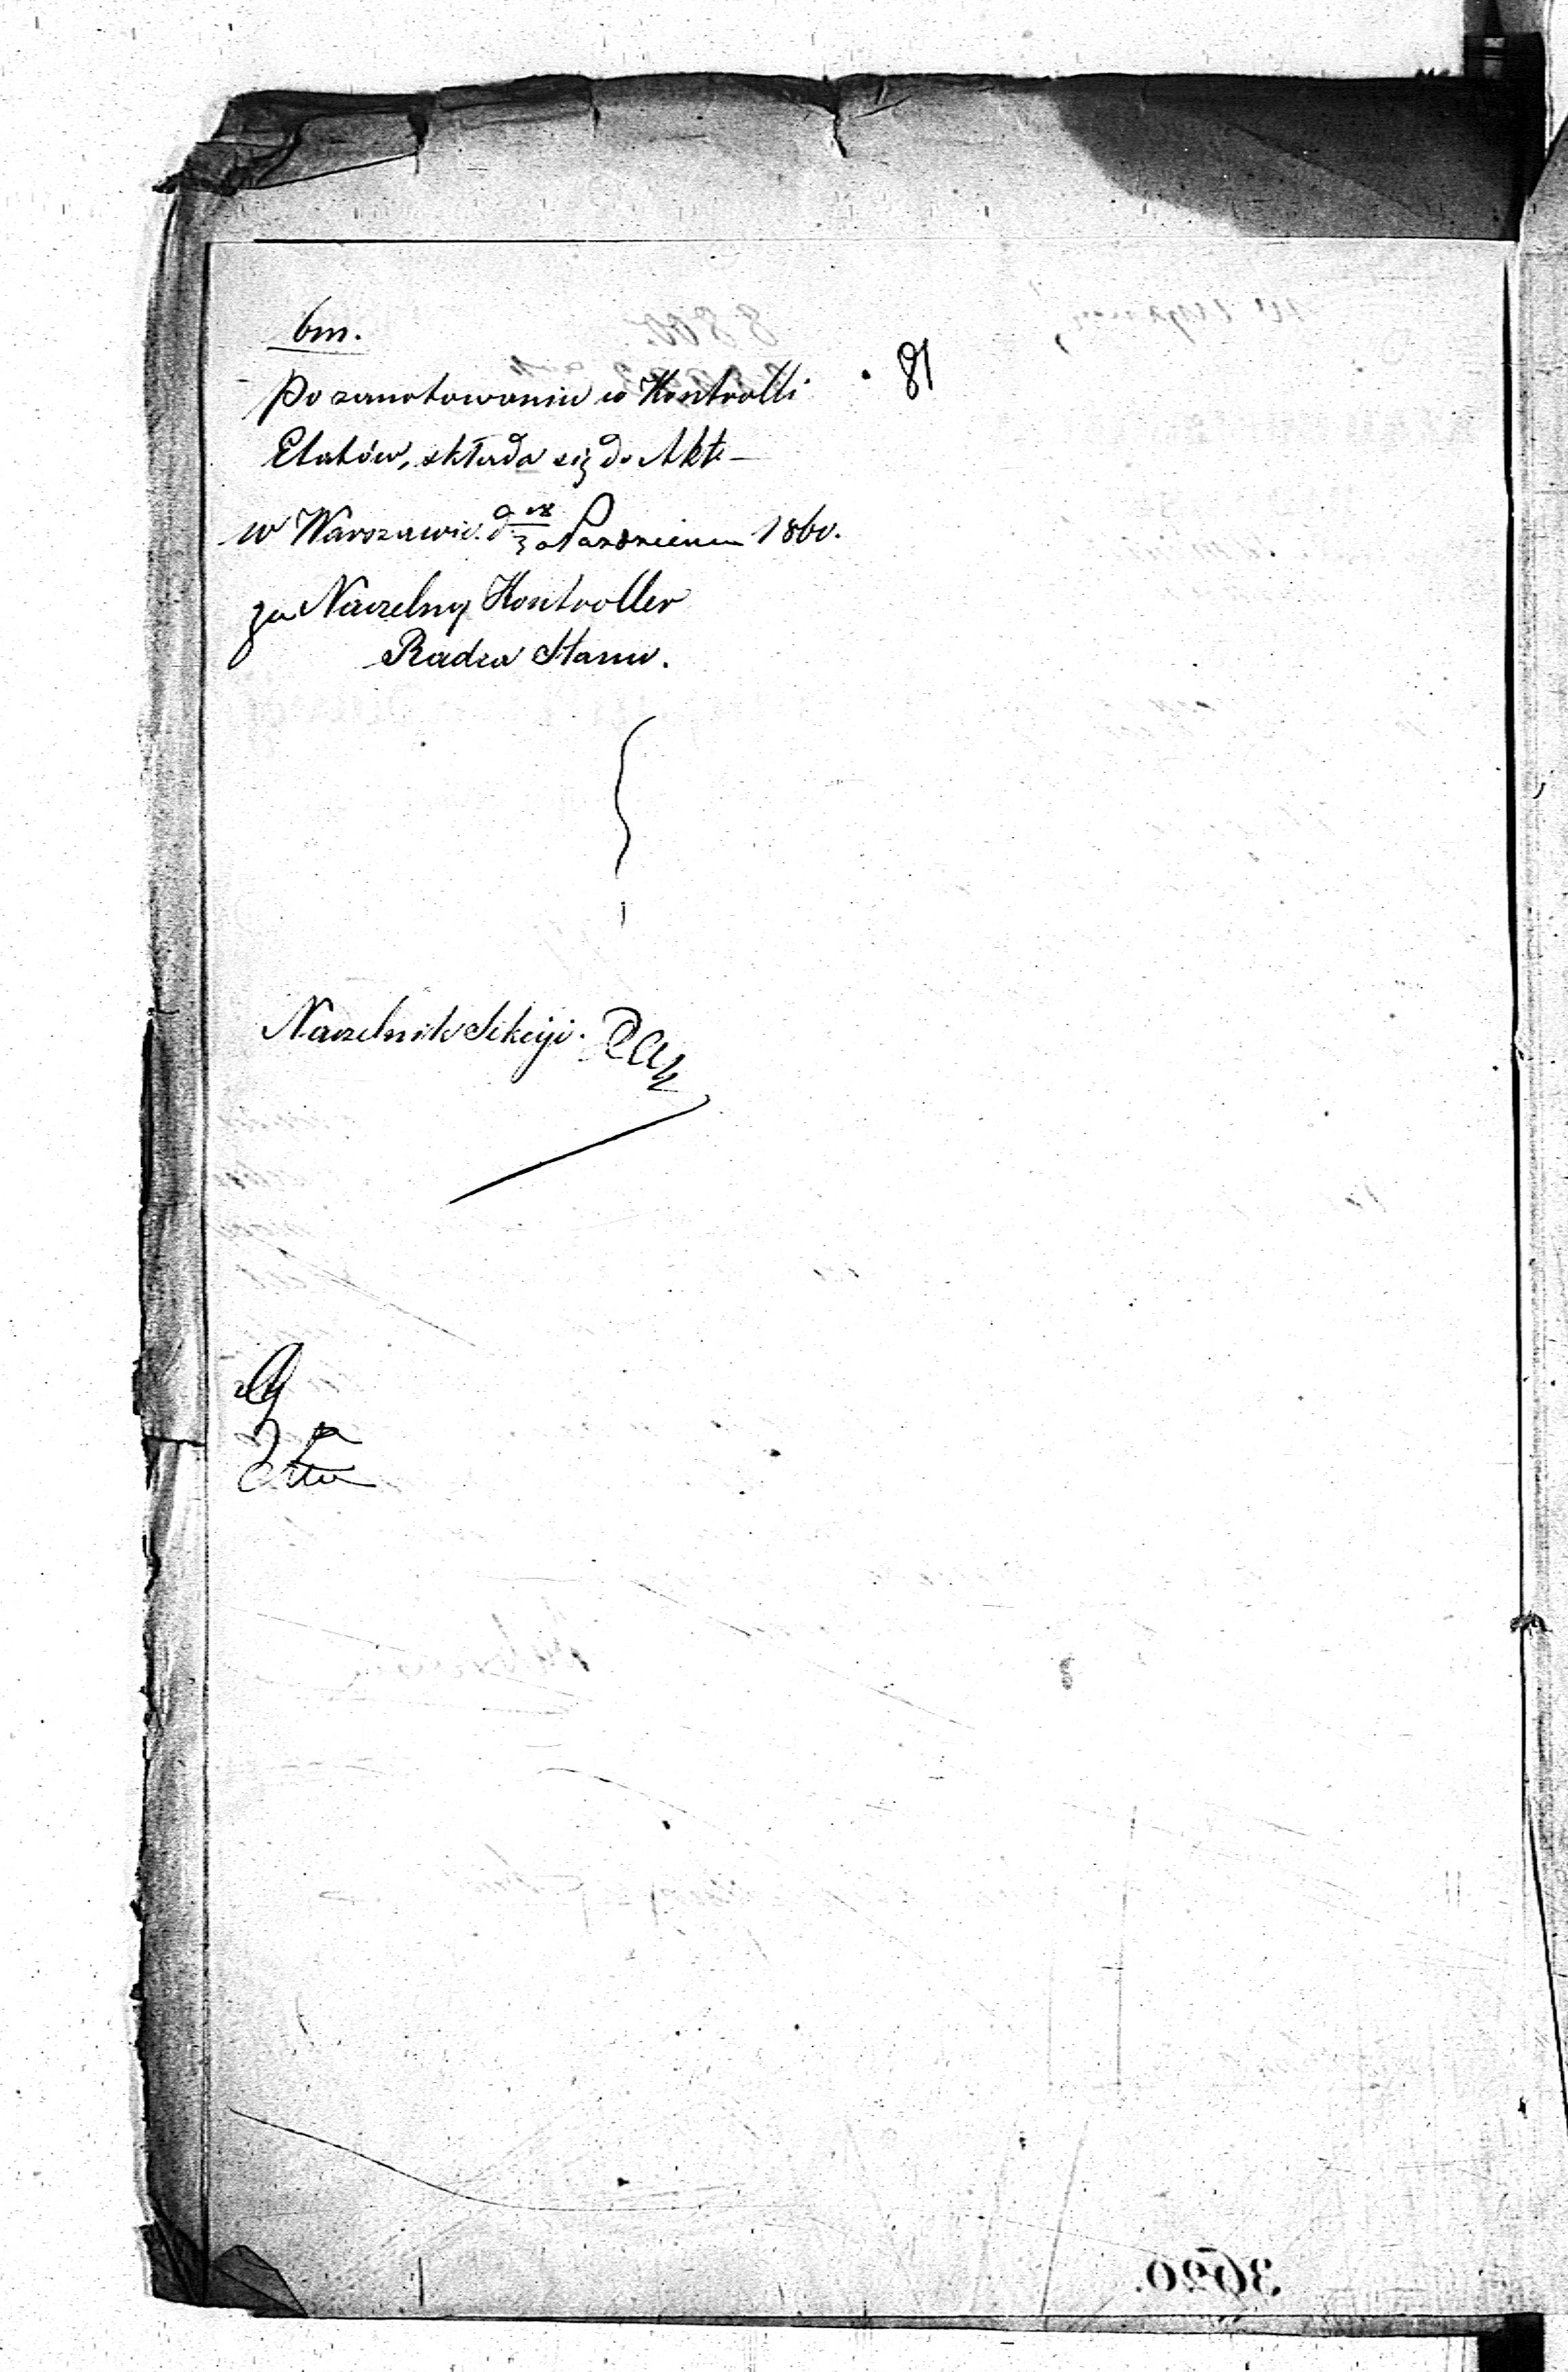 bm.
Po zanotowaniu w Kontrolli
Etatów, składa się do Akt –
w Warszawie d. 18/30 Października 1860.
za Naczelny Kontroller
Radca Stanu.
Naczelnik Sekcyi.
81
3620.